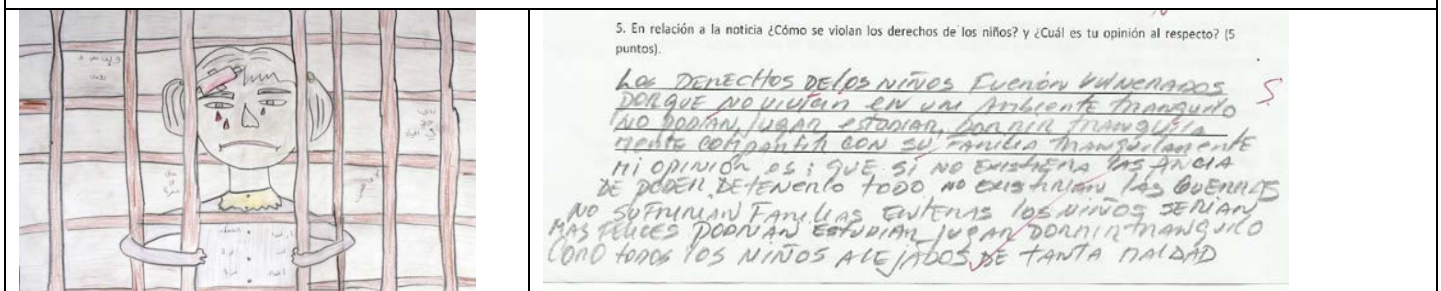 5. En relación a la noticia ¿Cómo se violan los derechos de los niños? y ¿Cuál es tu opinión al respecto? (5
puntos).
LOS DERECHOS DE LOS NIÑOS FUERÓN VULNERADOS
PORQUE NO VIVÍAN EN UM AMBIENTE TRANQUILO
NO PODÍAN, JUGAR ESTUDIAR, DORMIR TRANQUILA
MENTE COMPARTIR CON SU FAMILIA TRANQUILAMENTE
MI OPINIÓN ES: QUE SI NO EXISTIERA LAS ANCIA
DE PODER DETENERLO TODO NO EXISTIRIAN LAS GUERRAS
NO SUFRIRIAN FAMILIAS ENTERAS LOS NIÑOS SERIAN
MAS FELICES PODRIAN ESTUDIAR, JUGAR DORMIR TRANQUILO
COMO TODOS LOS NIÑOS ALEJADOS DE TANTA MALDAD
5